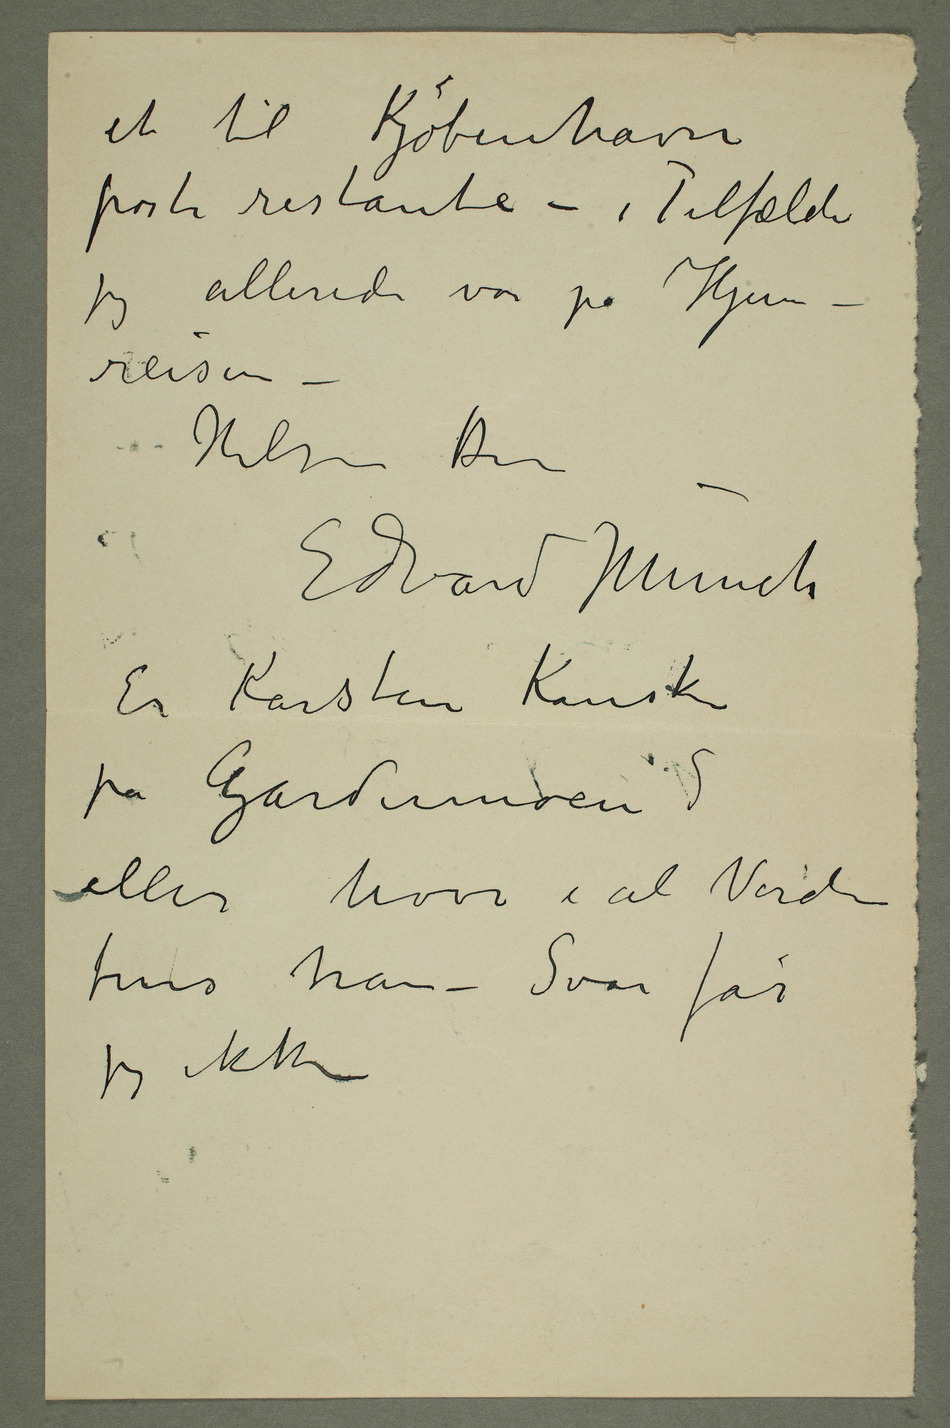 et til Kjøbenhavn
poste restante – i Tilfælde
jeg allerede var på Hjem–
reisen –
Hilsen Din
Edvard Munch
Er Karsten Kanske
på Gardermoen?
eller hvor i al Verden
fins han – Svar får
jeg ikke